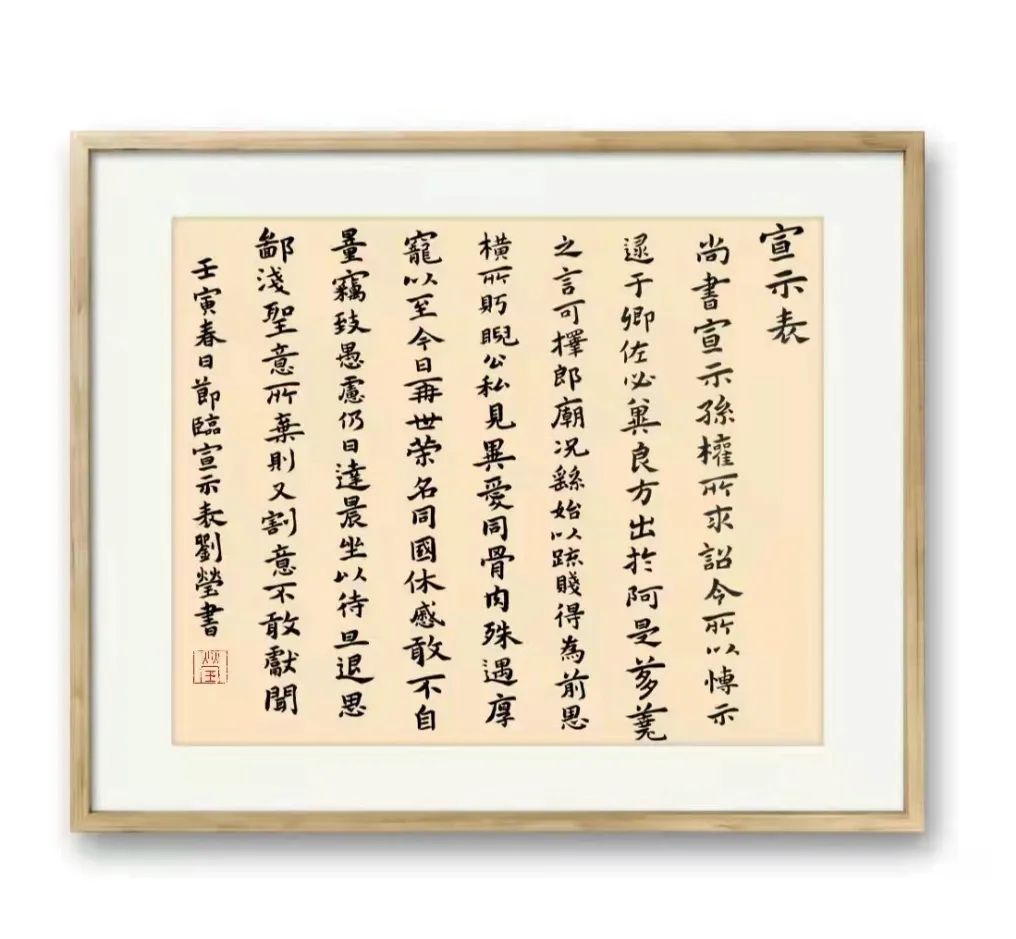 宣示表
尚書宣示孫權所求詔今所以愽示
逮于卿佐必冀良方出於阿是芻蕘
之言可擇郎廟況繇始以疏賤得為前恩
橫所眄睨公私見異愛同骨肉殊遇厚
寵以至今日再世榮名同國休慼敢不自
量竊致愚慮仍日達晨坐以待旦退思
鄙淺聖意所棄則又割意不敢獻聞
壬寅春日節臨宣示表劉瑩書